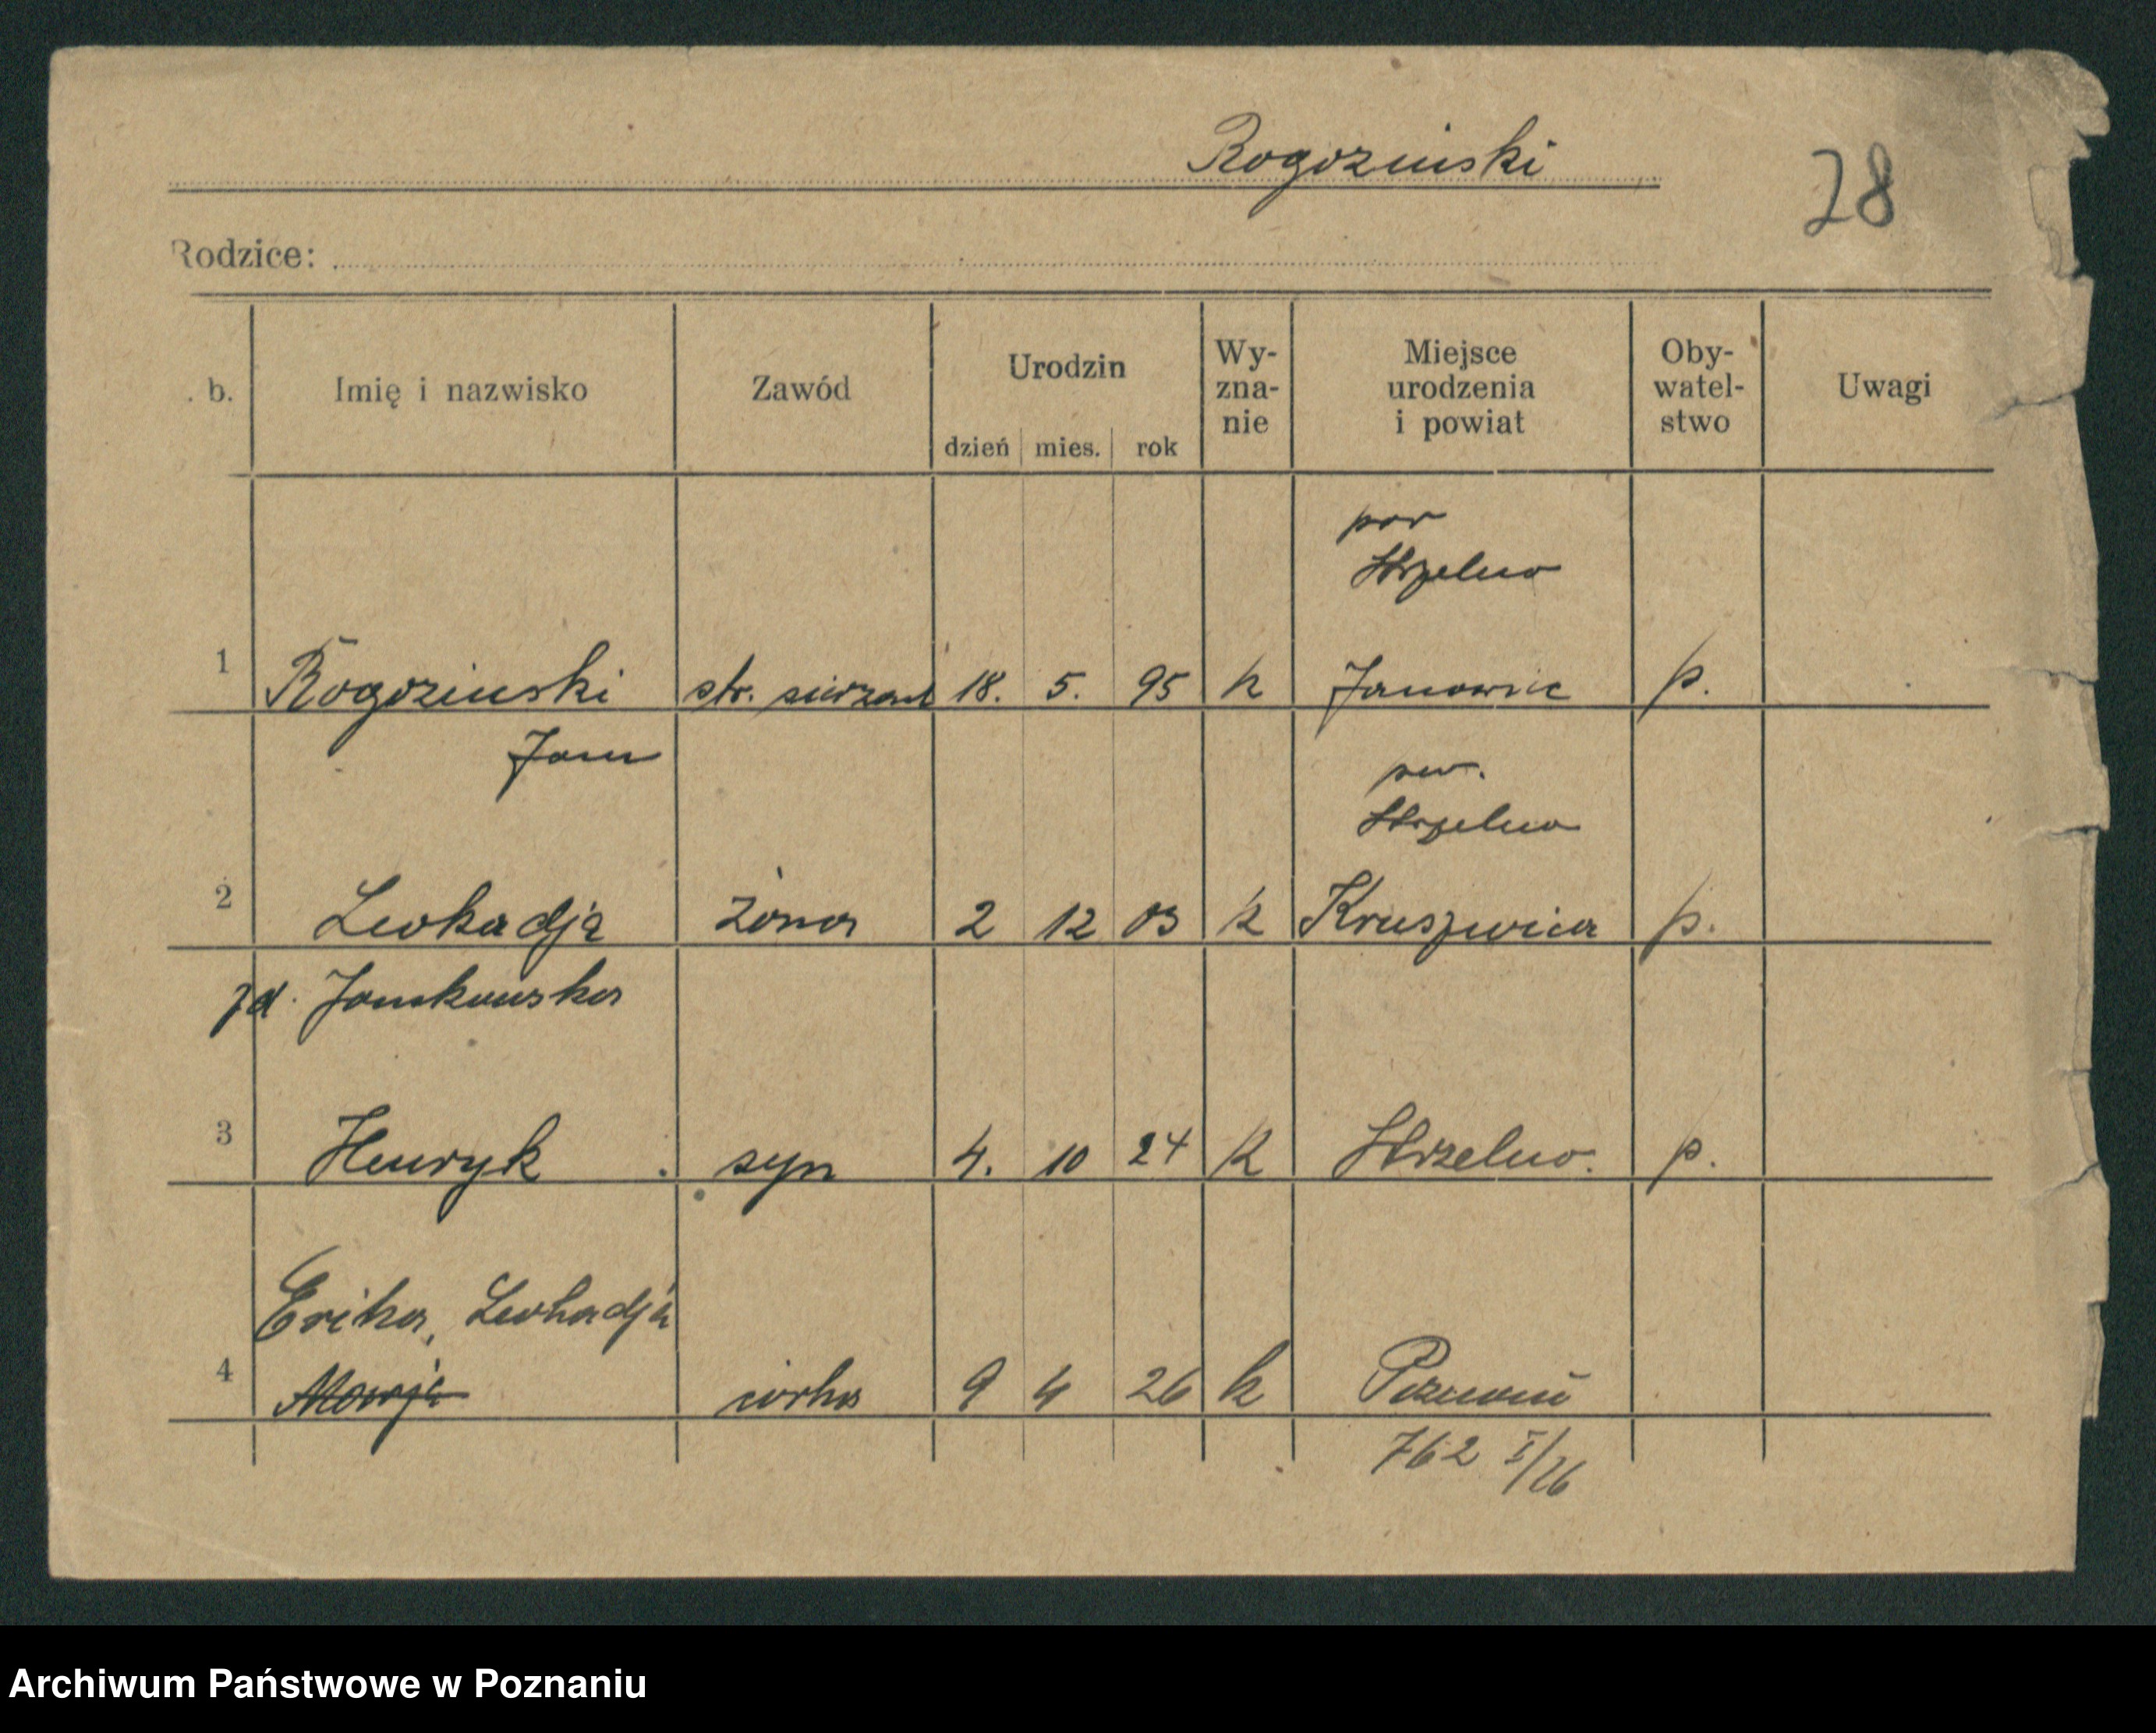 Rogozinski
28
Rodzice:
. b. Imię i nazwisko Zawód Urodzin dzień mies. rok Wy-zna-nie Miejsce urodzenia i powiat Oby-watel-stwo Uwagi
pow
Strzelno
1 Rogozinski str. sierżant 18. 5. 95 k Janowic p.
Jan
pow.
Strzelno
2 Leokadja żona 2 12 03 k Kruszwica p.
zd. Jankowska
3 Henryk syn 4. 10 24 k Strzelno. p.
Erika, Leokadja
4 Marja córka 9 4 26 k Poznań
762 I/26
Archiwum Państwowe w Poznaniu